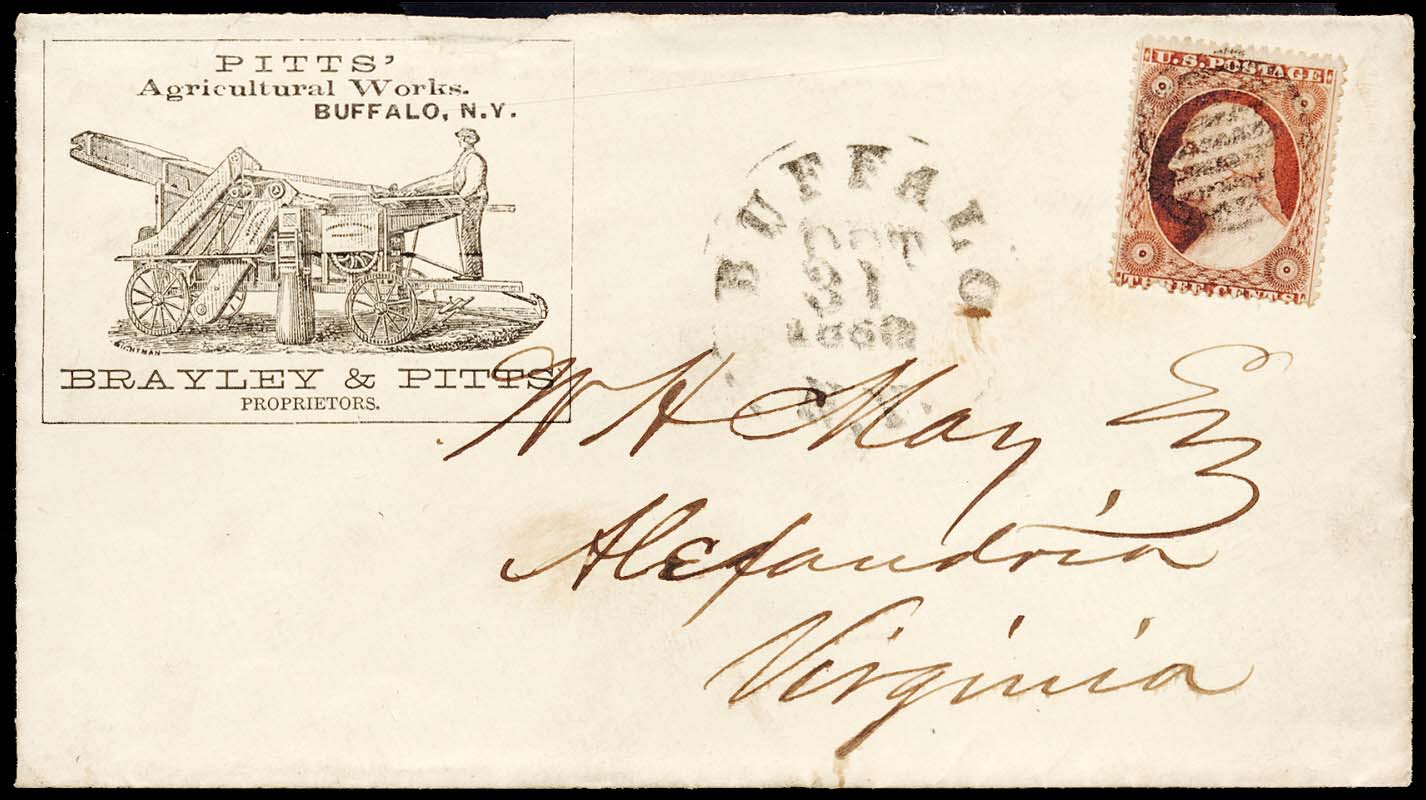 PITTS'
Agricultural Works.
BUFFALO, N.Y.
BRAYLEY & PITTS
PROPRIETORS.
BUFFALO
OCT
31
N.Y.
U.S. POSTAGE
THREE CENTS
W H May Esq
Alexandria
Virginia